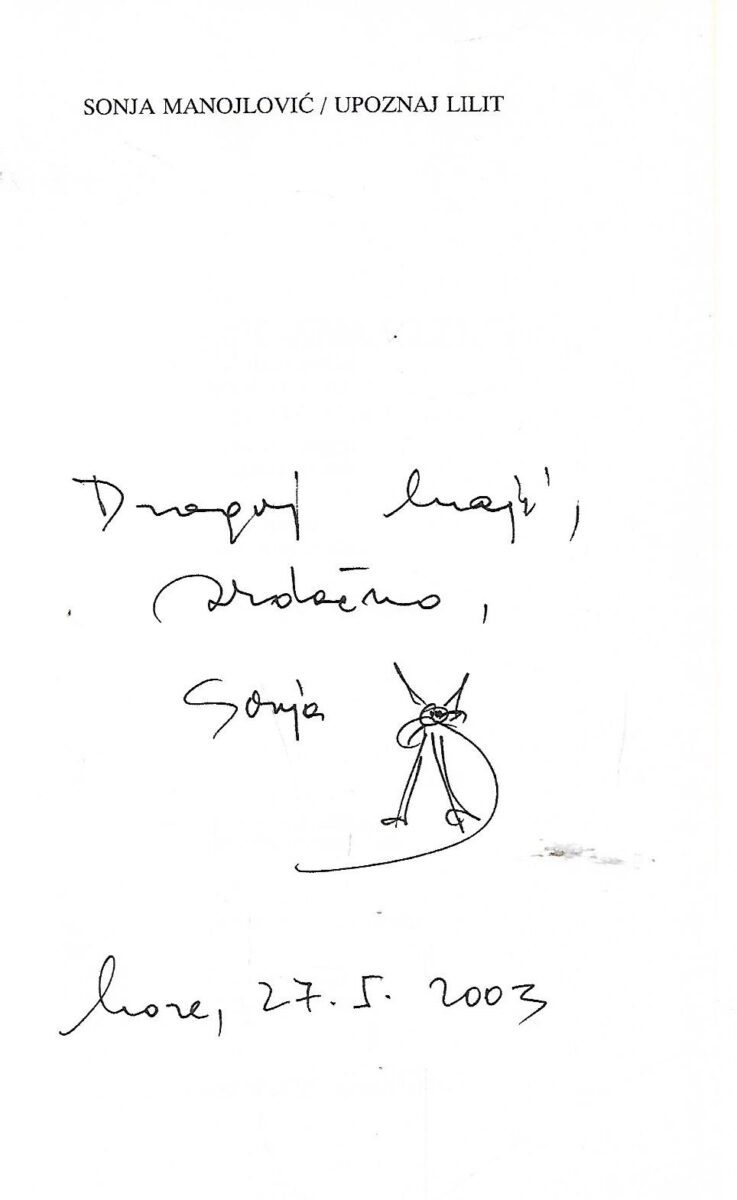 SONJA MANOJLOVIĆ / UPOZNAJ LILIT
Dragoj Maji,
srdačno,
Sonja
More, 27. 5. 2003